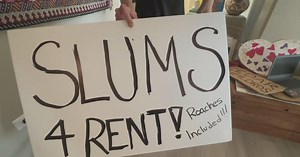 SLUMS
4 RENT!
Roaches
Included!!!